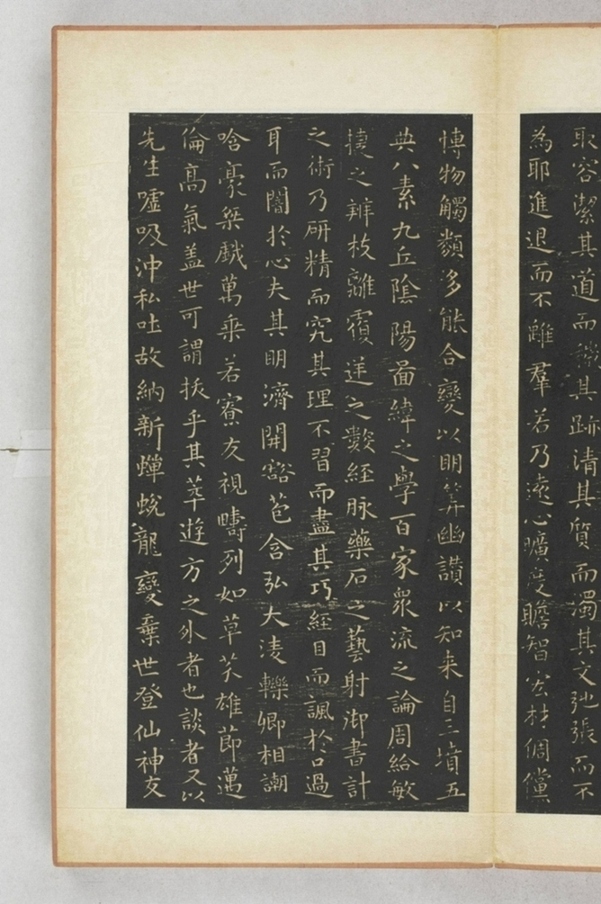 取容潔其道而穢其跡清其質而濁其文弛張而不
為耶進退而不離羣若乃遠心曠度贍智宏材倜儻
博物觸類多能合變以明筭幽讚以知来自三墳五
典八素九丘陰陽圖緯之學百家眾流之論周給敏
捷之辨枝離覆逆之數經脉藥石之藝射御書計
之術乃研精而究其理不習而盡其巧經目而諷於口過
耳而闇於心夫其明濟開豁苞含弘大淩轢卿相謿
哈豪桀戲萬乘若寮友視疇列如草芥雄節邁
倫高氣蓋世可謂拔乎其萃遊方之外者也談者又以
先生噓吸沖和吐故納新蟬蛻龍變棄世登仙神友